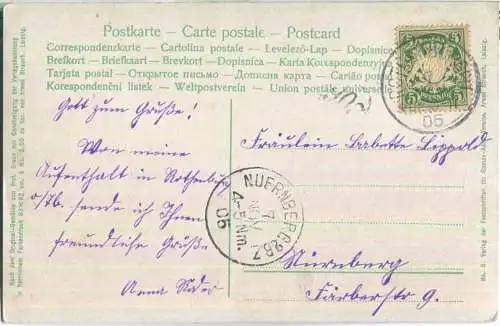 Postkarte – Carte postale – Postcard
Correspondenzkarte – Cartolina postale – Levelező-Lap – Dopisnice
Brefkort – Briefkaart – Brevkort – Dopisnica – Karta Korespondencyjna
Tarjeta postal – Открытое письмо – Дописна карта – Cartão postal
Korespondenční listek – Weltpostverein – Union postale universelle
5
5
05
Gott zum Gruße!
Von meine
Aufenthalt in Rothenburg
o/Tb. sende ich Ihnen
freundliche Grüße
Anna
Fräulein Babette Lippold
NUERNBERG 2.B.7
7
NOV
4-5 Nm.
05
Nürnberg
Färberstr 9.